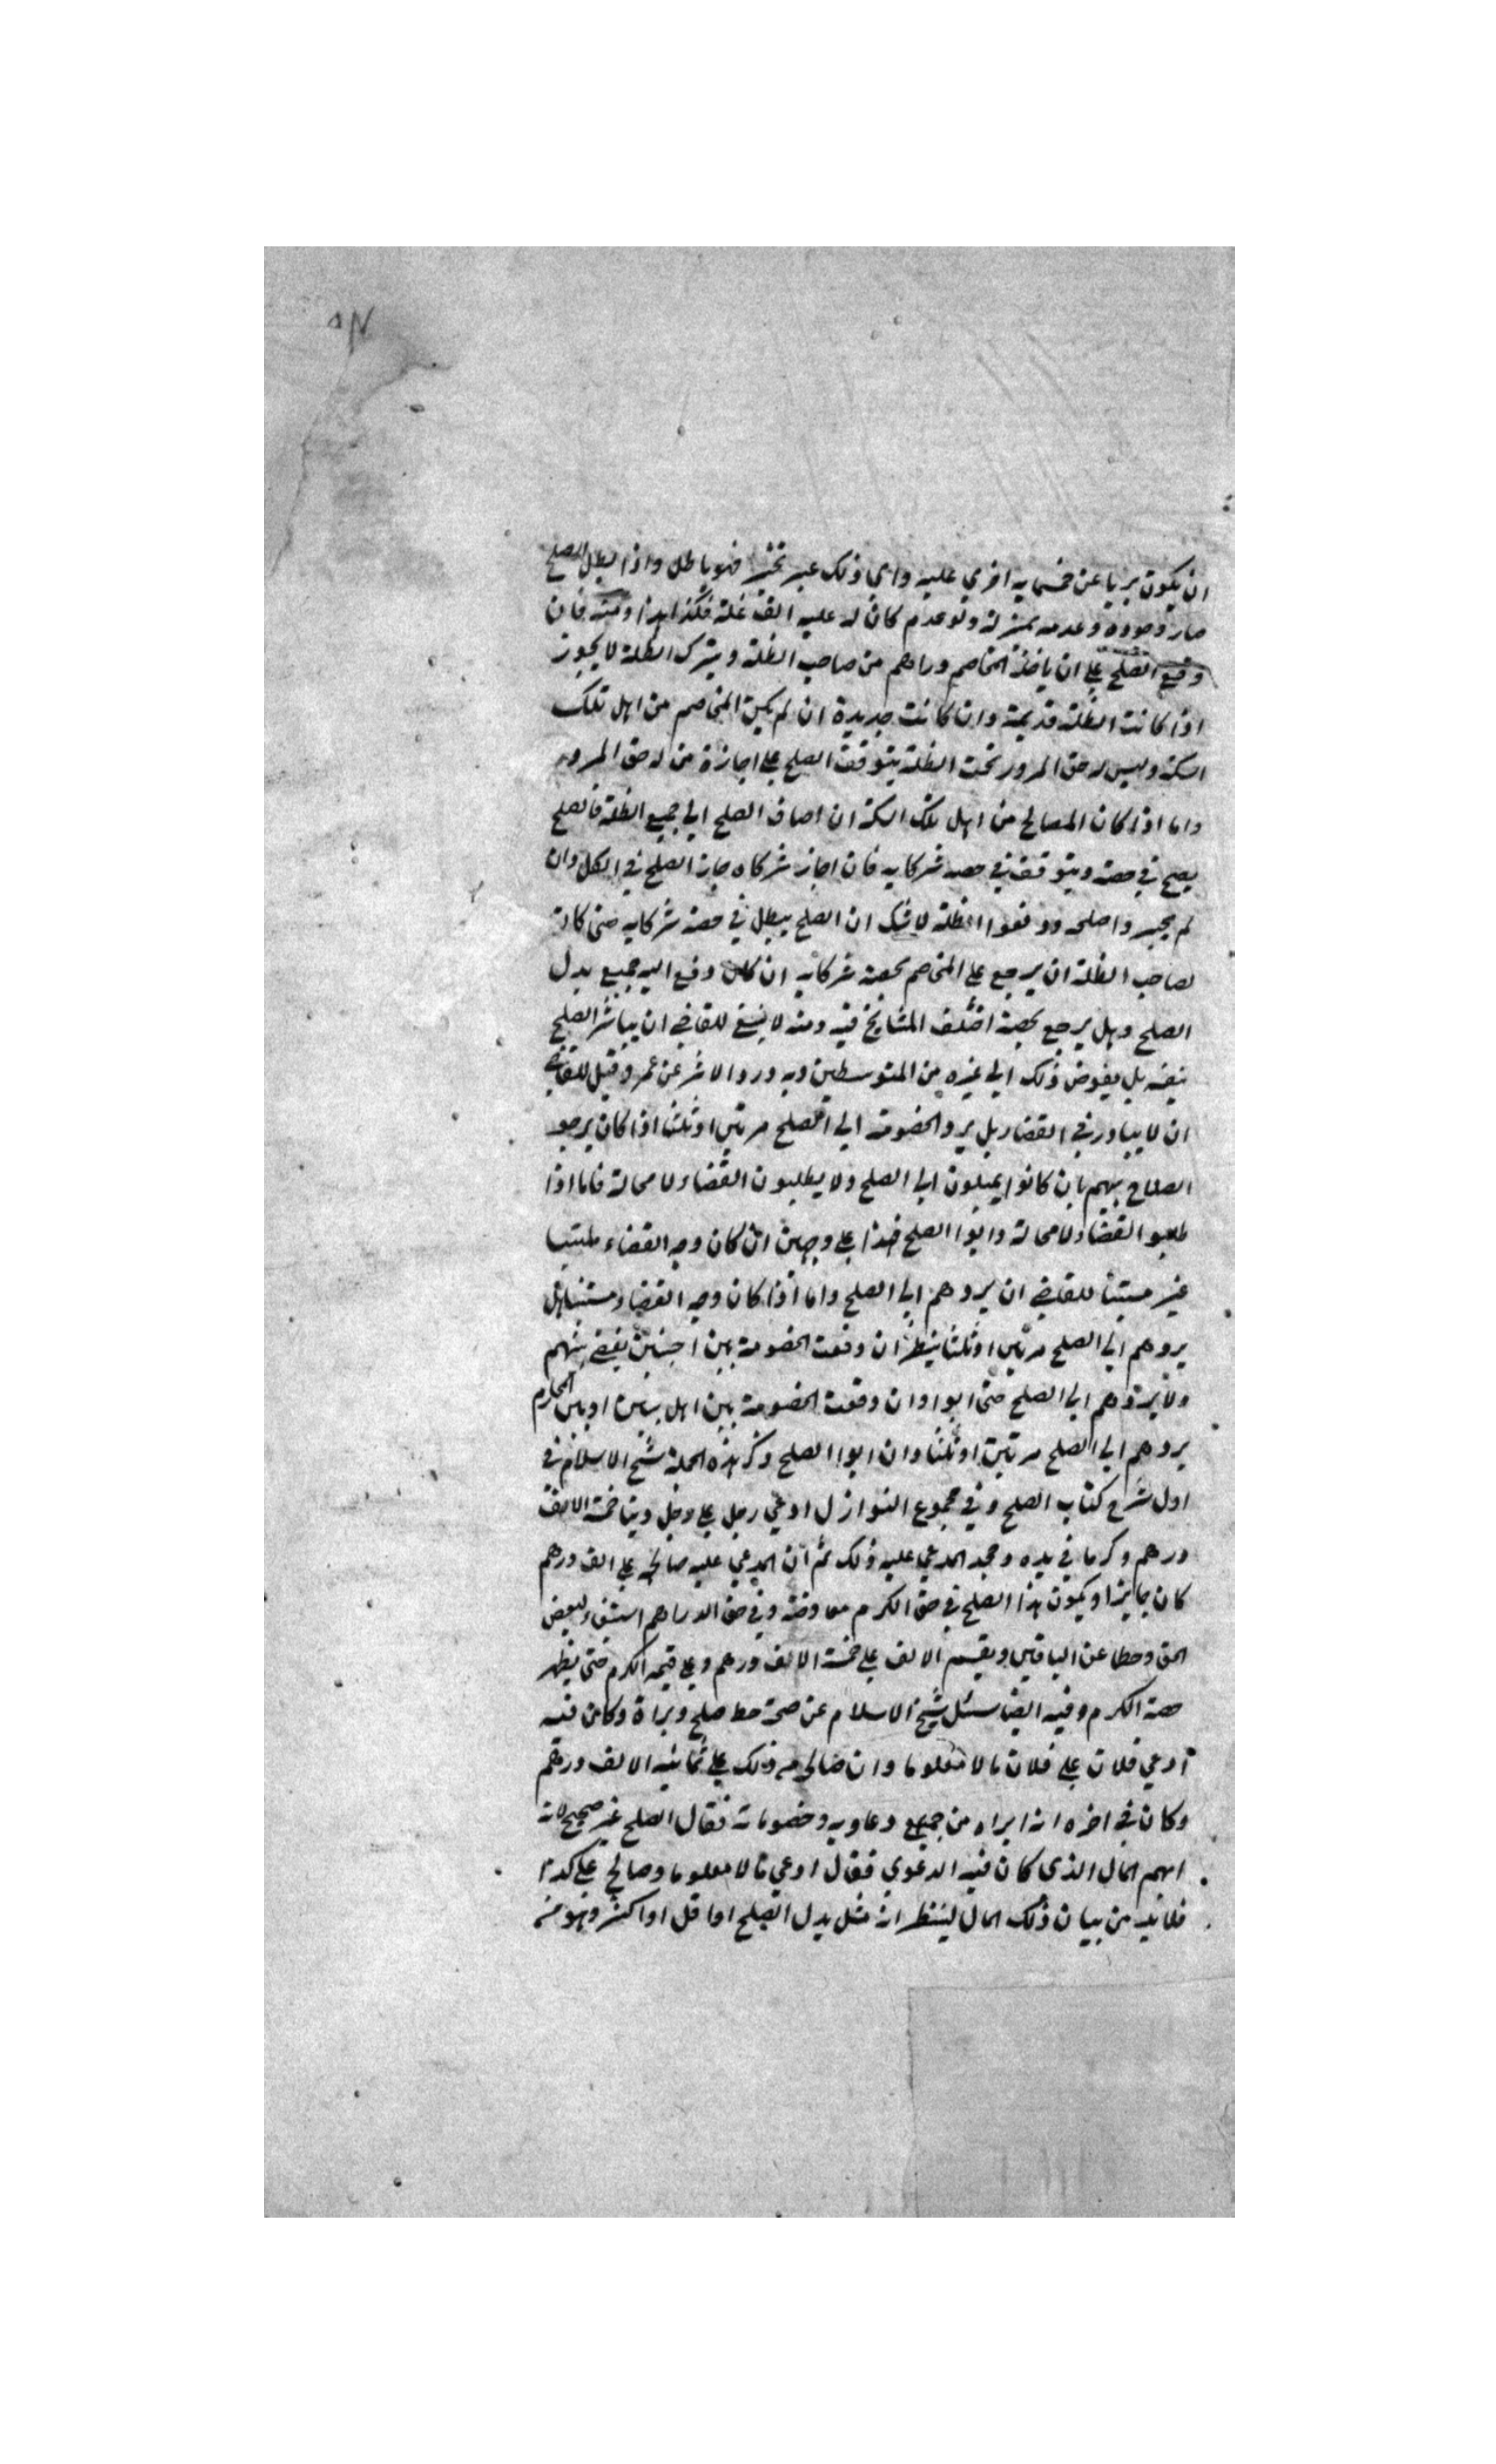 ان يكون بريا عن خمسمايه اخري عليه واي ذلك عبر تخير فهو باطل واذا بطل الصلح
صار وجوده وعدمه بمنزلة ولو عدم كان له عليه الف غلة فكذا هذا ومنه فان
وقع الصلح علي ان ياخذ المخاصم دراهم من صاحب الظلة ويترك الظلة لا يجوز
اذا كانت الظلة قديمة وان كانت جديدة ان لم يكن المخاصم من اهل تلك
السكة وليس له حق المرور تحت الظلة يتوقف الصلح علي اجازة من له حق المرور
واما اذا كان المصالح من اهل تلك السكة ان اضاف الصلح الي جميع الظلة فالصلح
يصح في حصته ويتوقف في حصه شركايه فان اجاز شركاه جاز الصلح في الكل وان
لم يجيروا صلحه ورفعوا الظلة لا شك ان الصلح يبطل في حصة شركايه حتي كان
لصاحب الظلة ان يرجع علي المخاصم بحصة شركايه ان كان دفع اليه جميع بدل
الصلح وهل يرجع بحصته اختلف المشايخ فيه ومنه لا ينبغي للقاضي ان يباشر الصلح
بنفسه بل يفوض ذلك الي غيره من المتوسطين وبه ورد الاثر عن عمر وقيل للقاضي
ان لا يبادر في القضا بل يرد الخصومة الي الصلح مرتين او ثلثا اذا كان يرجو
الصلاح بينهم بان كانوا يميلون الي الصلح ولا يطلبون القضاء لا محالة فاما اذا
طلبوا القضاء لا محالة وابوا الصلح فهذا علي وجهين ان كان وجه القضاء ملتبسا
غير مستبنا للقاضي ان يردهم الي الصلح واما اذا كان وجه القضاء مستبنا هل
يردهم الي الصلح مرتين او ثلثا ينظر ان وقعت الخصومة بين اجنبين يقضي بينهم
ولا يردهم الي الصلح حتي ابوا وان وقعت الخصومة بين اهل بيتين او بين المحارم
يردهم الي الصلح مرتين او ثلثا وان ابوا الصلح ذكر هذه الجملة شيخ الاسلام في
اول شرح كتاب الصلح وفي مجموع النوازل ادعي رجل علي رجل دينا خمسة الالف
درهم وكرما في يده وجحد المدعي عليه ذلك ثم ان المدعي عليه صالحه علي الف درهم
كان جايزا ويكون هذا الصلح في حق الكرم معاوضة وفي حق الدراهم استيفاء لبعض
الحق وحطا عن الباقين ويقسم الالف علي خمسة الالف درهم وعلي قيمه الكرم حتي يظهر
حصة الكرم وفيه ايضا سئل شيخ الاسلام عن صحة خط صلح وبراة وكان فيه
ادعي فلان علي فلان مالا معلوما وان صالحه من ذلك علي ثمانيه الالف درهم
وكان في اخره انه ابراه من جميع دعاويه وخصوماته فقال الصلح غير صحيح لانه
ابهم المال الذي كان فيه الدعوي فقال ادعي مالا معلوما وصالح علي كذا
فلا بد من بيان ذلك المال لينظر انه مثل بدل الصلح او اقل او اكثر وهو من